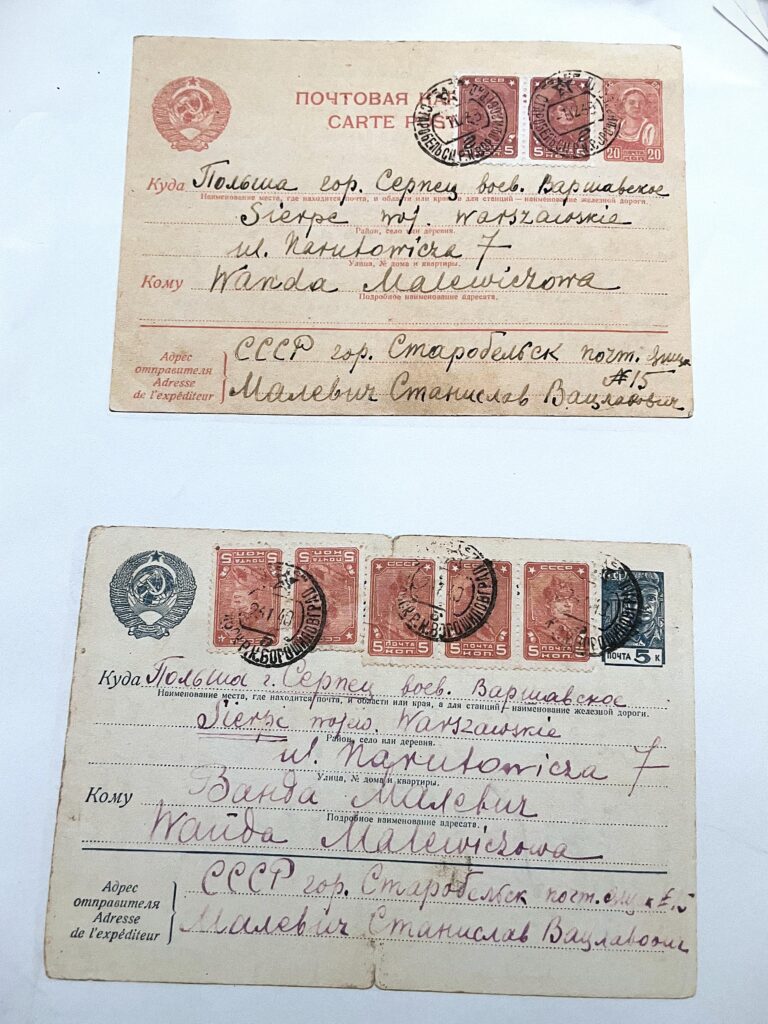 ПОЧТОВАЯ
CARTE
СССР
5
5
20 20
Куда Польша гор. Серпец воев. Варшавское
Наименование места, где находится почта, и области или края, а для станций — наименование железной дороги.
Sierpc woj. Warszawskie
Район, село или деревня.
ul. Narutowicza 7
Улица, № дома и квартиры.
Кому Wanda Malewiczowa
Подробное наименование адресата.
Адрес
отправителя
Adresse
de l'expéditeur
СССР гор. Старобельск почт. ящик
№15
Малевич Станислав Вацлавович
ПОЧТА 5 КОП.
ПОЧТА 5 КОП.
СССР
5 ПОЧТА КОП. 5
СССР
5 ПОЧТА КОП. 5
СССР
5 ПОЧТА КОП. 5
ПОЧТА 5 К
Куда Польша г. Серпец воев. Варшавское
Наименование места, где находится почта, и области или края, а для станций — наименование железной дороги.
Sierpc wojew. Warszawskie
Район, село или деревня.
ul. Narutowicza 7
Улица, № дома и квартиры.
Кому Ванда Малевич
Подробное наименование адресата.
Wanda Malewiczowa
Адрес
отправителя
Adresse
de l'expéditeur
СССР гор. Старобельск почт. ящик №15
Малевич Станислав Вацлавович